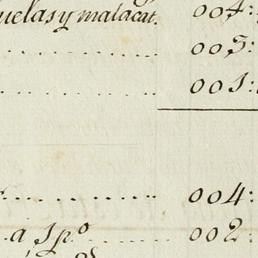 uelas y malacat. 004:
005:
001:
004:
a Jp.º 002: